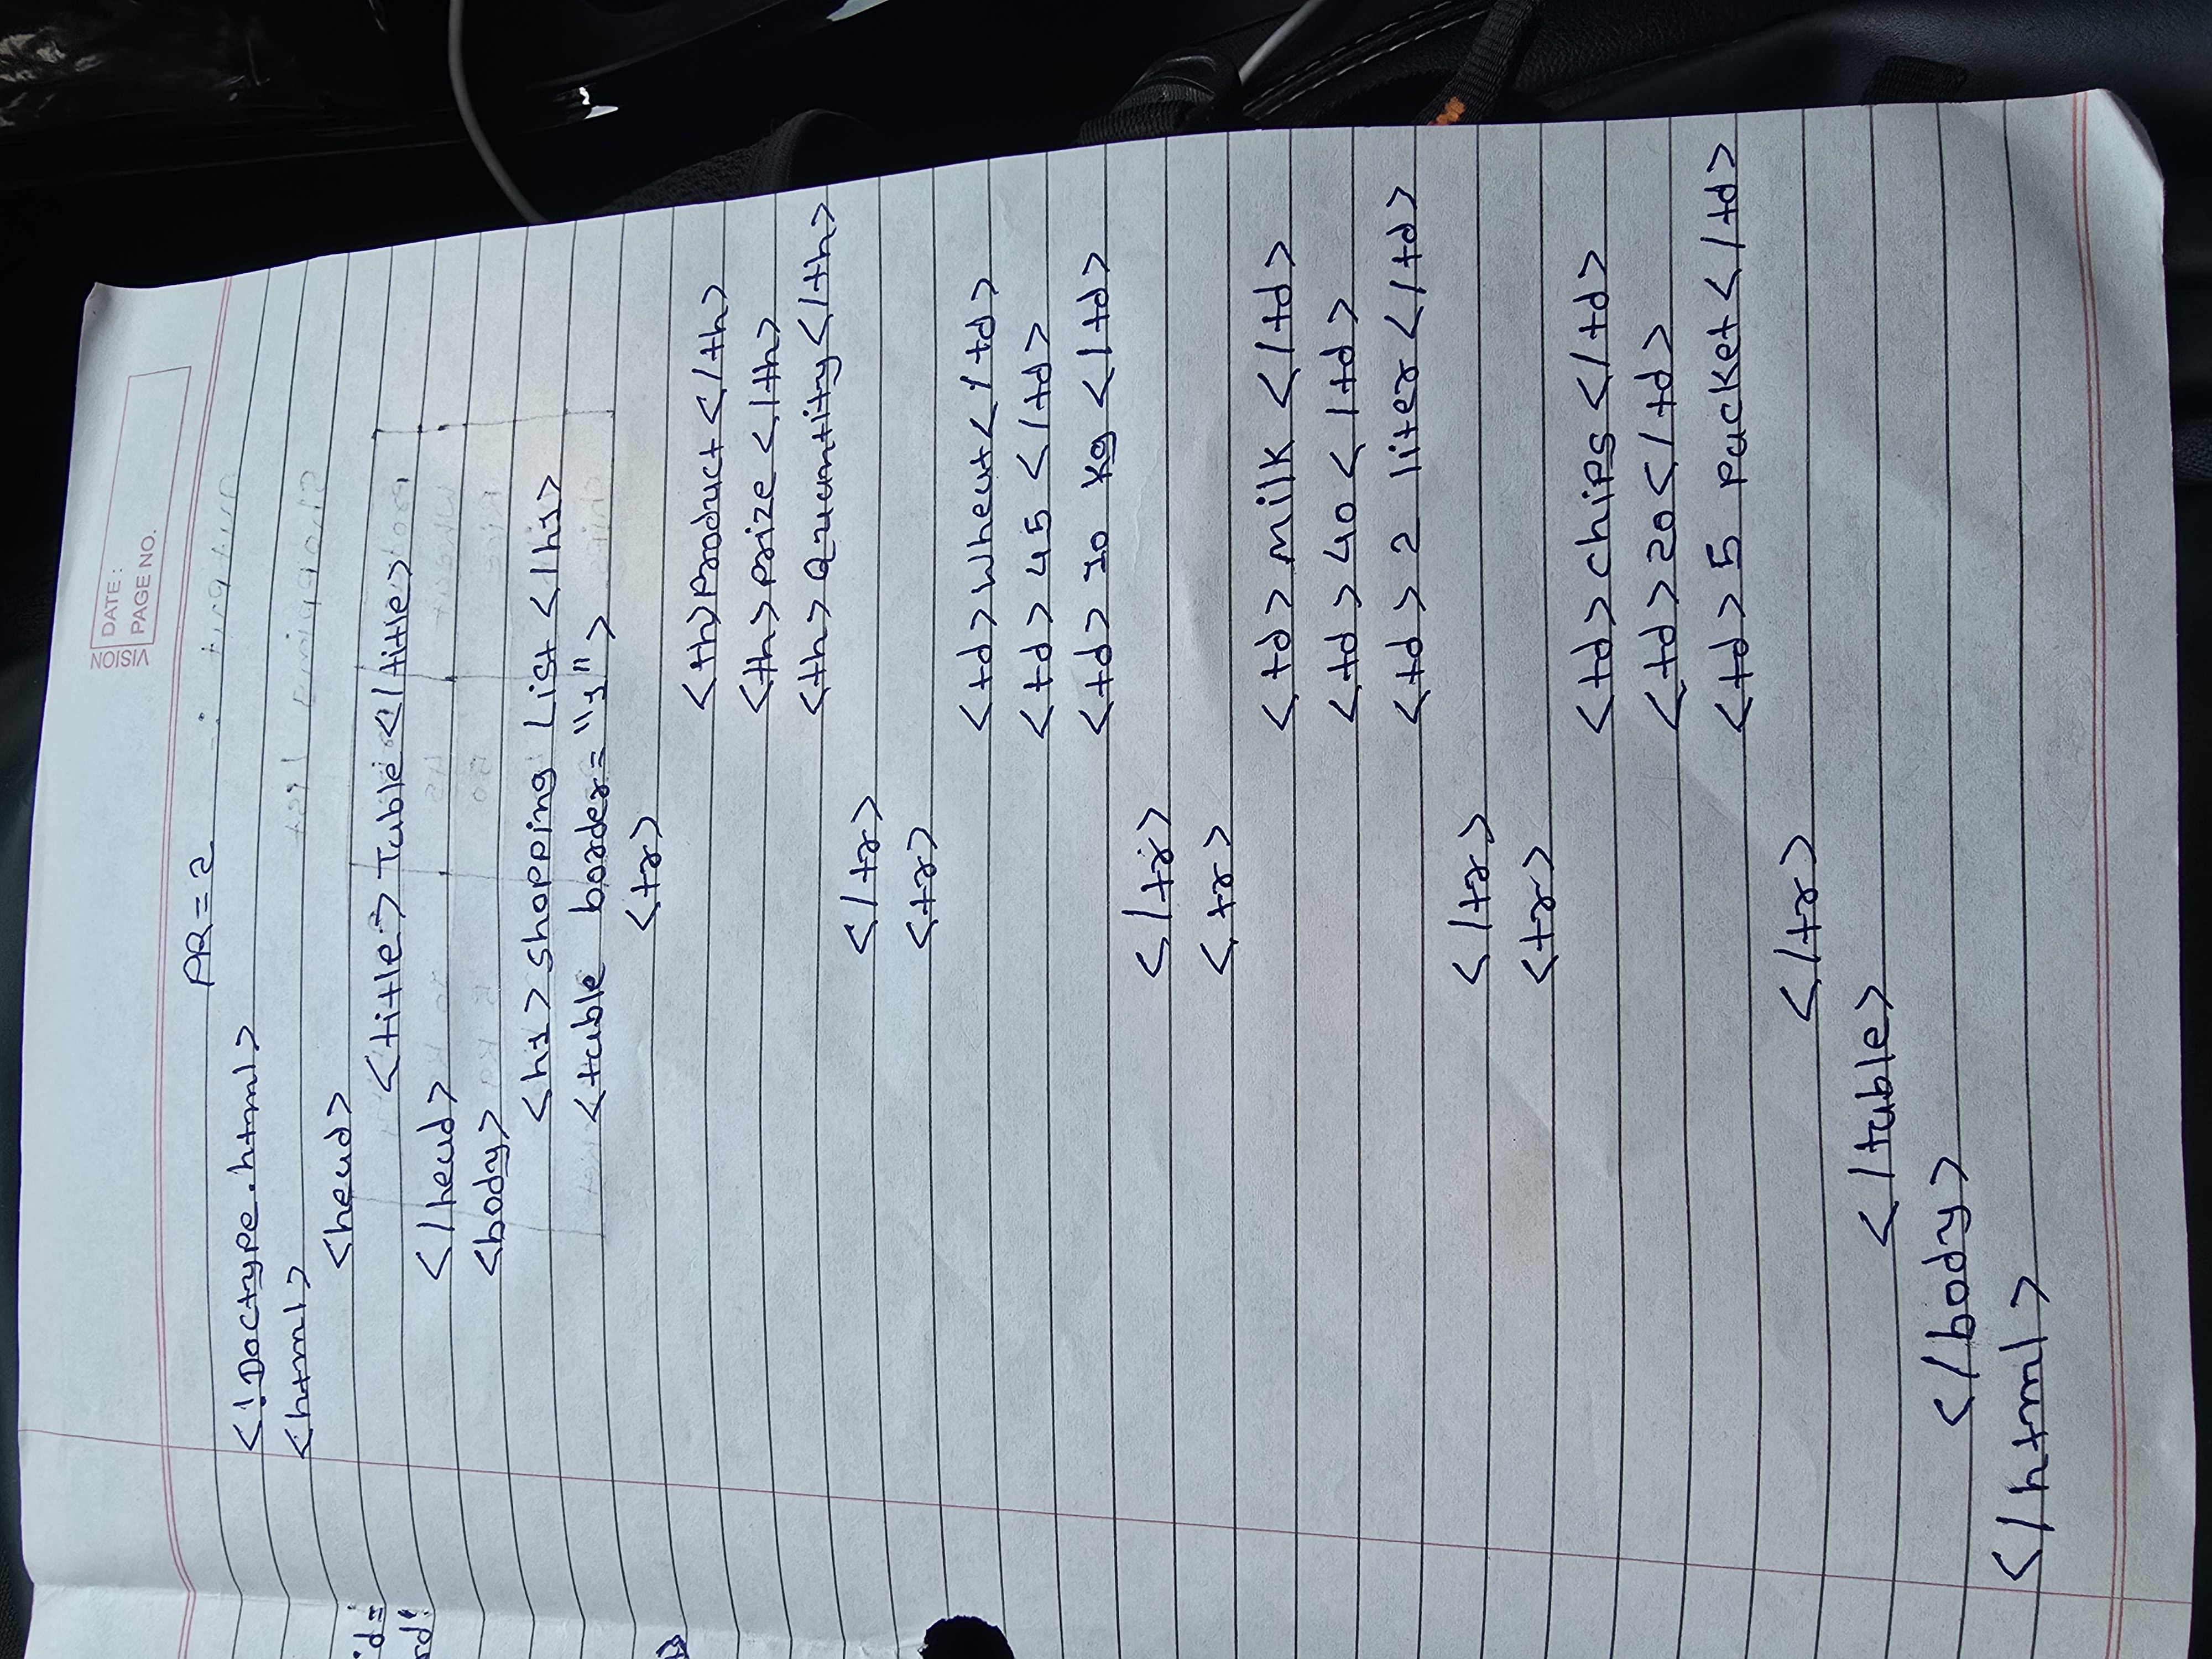 VISION
DATE :
PAGE NO.
PR = 2
<!Doctype.html>
<html>
<head>
<title> Table </title>
</head>
<body>
<h1> Shopping List </h1>
<table border= "1" >
<tr>
<th>Product </th>
<th> prize </th>
<th> Quantity </th>
</tr>
<tr>
<td> Wheat </td>
<td> 45 </td>
<td> 10 kg </td>
</tr>
<tr>
<td> milk </td>
<td> 40 </td>
<td> 2 liter </td>
</tr>
<tr>
<td> chips </td>
<td> 20 </td>
<td> 5 packet </td>
</tr>
</table>
</body>
</html>